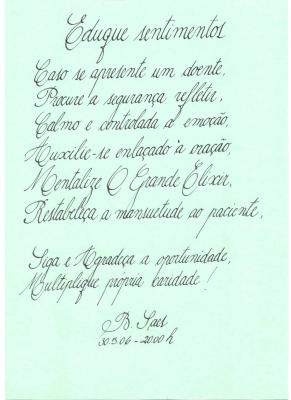 Eduque sentimentos
Caso se apresente um doente,
Procure a segurança refletir,
Calmo e controlada a emoção,
Auxilie-se enlaçado à oração,
Mentalize O Grande Elixir,
Restabeleça a mansuetude ao paciente,
Siga e Agradeça a oportunidade,
Multiplique própria caridade!
B. Saes
30.5.06 - 20:00 h